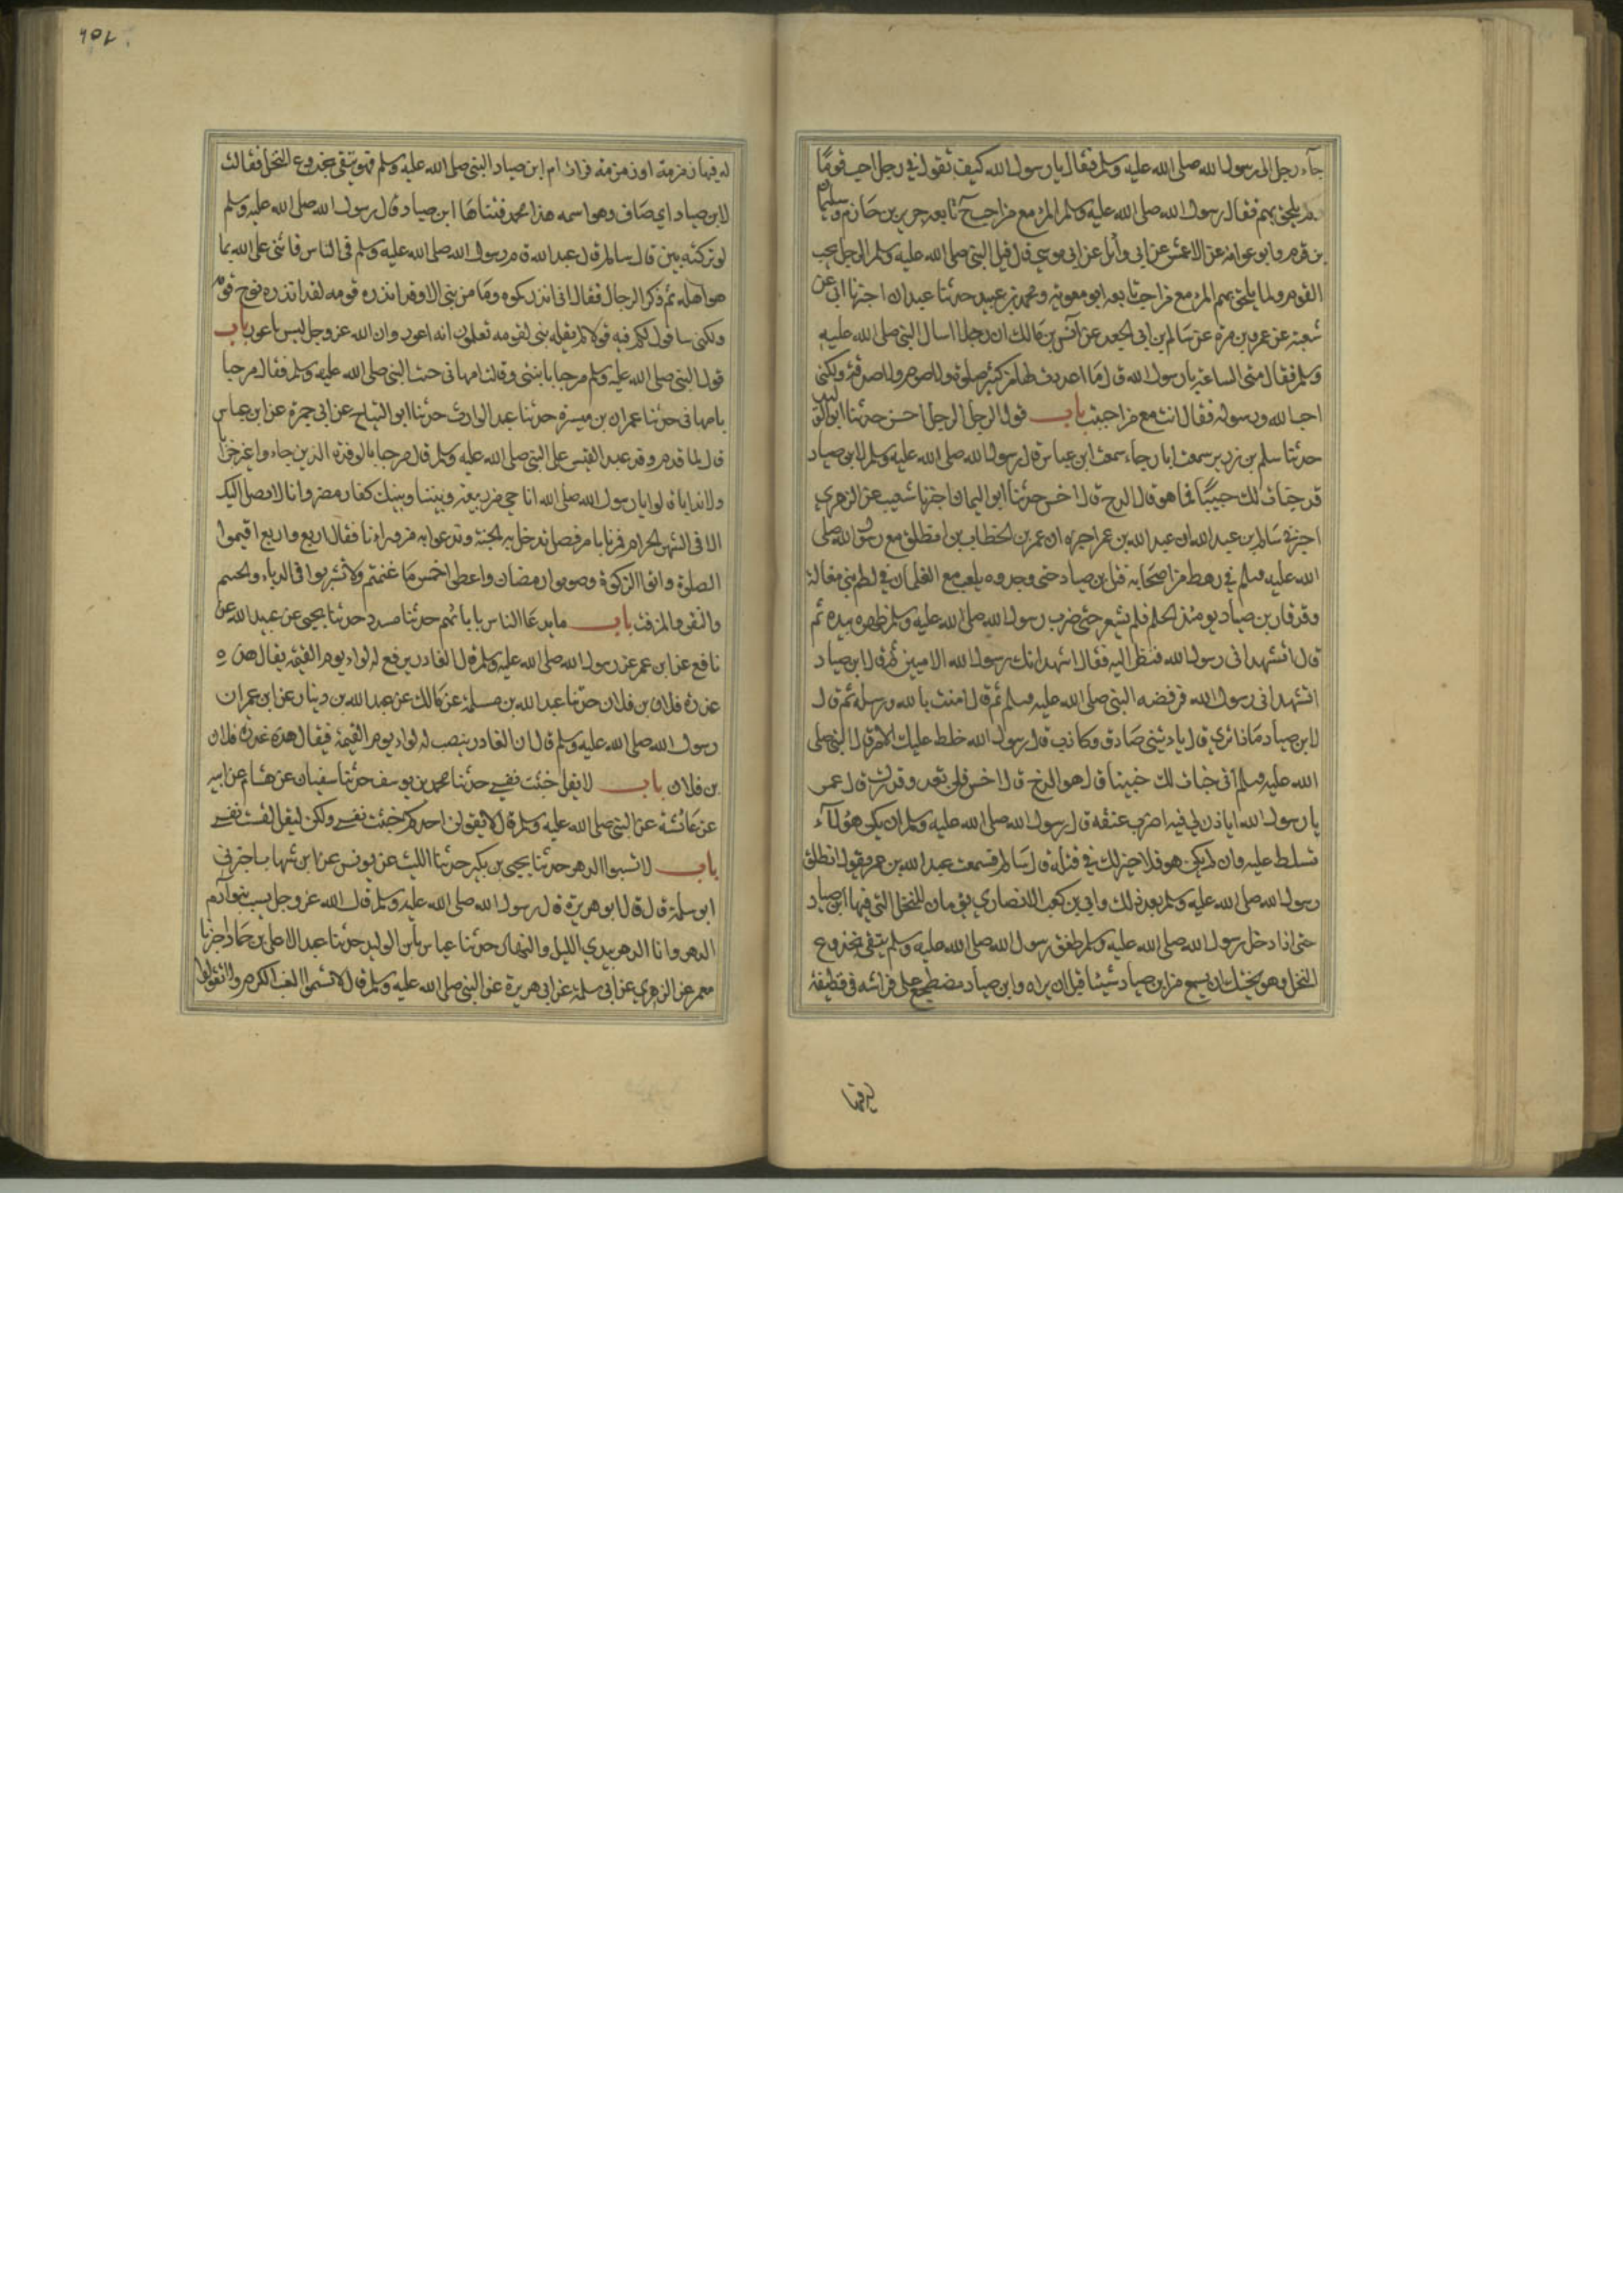 جاء رجل الى رسول الله صلى الله عليه وسلم فقال يا رسول الله كيف تقول في رجل احب قومًا
ولم يلحق بهم فقال رسول الله صلى الله عليه وسلم المرء مع من احب تابعه جرير بن حازم وسليمان
بن قرم وابو عوانة عن الاعمش عن ابي وائل عن ابي موسي قال قيل للنبي صلى الله عليه وسلم الرجل يحب
القوم ولما يلحق بهم المرء مع من احب تابعه ابو معوية ومحمد بن عبيد حدثنا عبدان اخبرنا ابي عن
شعبة عن عمرو بن مرة عن سالم بن ابي الجعد عن انس بن مالك ان رجلا سال النبي صلى الله عليه
وسلم فقال متى الساعة يا رسول الله قال ما اعددت لها من كثير صلوة ولا صوم ولا صدقة ولكني
احب الله ورسوله فقال انت مع من احببت باب قول الرجل للرجل احسن حدثنا ابو الوليد
حدثنا سلم بن زرير سمعت ابا رجاء سمعت ابن عباس قال رسول الله صلى الله عليه وسلم لابن صياد
قد خبات لك خبيئًا فما هو قال الدخ قال اخس حدثنا ابو اليمان اخبرنا شعيب عن الزهري
اخبرني سالم بن عبد الله ان عبد الله بن عمر اخبره ان عمر بن الخطاب بن انطلق مع رسول الله صلى
الله عليه وسلم في رهط من اصحابه قبل بن صياد حتى وجدوه يلعب مع الغلمان في اطم بني مغالة
وقد قارب بن صياد يومئذ الحلم فلم يشعر حتى ضرب رسول الله صلى الله عليه وسلم ظهره بيده ثم
قال اتشهد اني رسول الله فنظر اليه فقال اشهد انك رسول الله الاميين ثم قال ابن صياد
اتشهد اني رسول الله فرفضه النبي صلى الله عليه وسلم ثم قال امنت بالله ورسله ثم قال
لابن صياد ماذا ترى قال ياتيني صادق وكاذب قال رسول الله خلط عليك الامر قال النبي صلى
الله عليه وسلم اني خبات لك خبيئا قال هو الدخ قال اخس فلن تعدو قدرك قال عمر
يا رسول الله اتاذن لي فيه اضرب عنقه قال رسول الله صلى الله عليه وسلم ان يكن هو لا
تسلط عليه وان لم يكن هو فلا خير لك في قتله قال سالم فسمعت عبد الله بن عمر يقول انطلق
رسول الله صلى الله عليه وسلم بعد ذلك وابي بن كعب الانصاري يؤمان النخل التي فيها ابن صياد
حتى اذا دخل رسول الله صلى الله عليه وسلم طفق رسول الله صلى الله عليه وسلم يتقي بجذوع
النخل وهو يختل ان يسمع من ابن صياد شيئا قبل ان يراه وابن صياد مضطجع على فراشه في قطيفة
له فيها رمزمة او زمزمة فرات ام ابن صياد النبي صلى الله عليه وسلم وهو يتقي بجذوع النخل فقالت
لابن صياد اي صاف وهو اسمه هذا محمد فتناها ابن صياد قال رسول الله صلى الله عليه وسلم
لو تركته بين قال سالم قال عبد الله قام رسول الله صلى الله عليه وسلم في الناس فاثنى على الله بما
هو اهله ثم ذكر الدجال فقال اني انذركموه وما من نبي الا وقد انذره قومه لقد انذره نوح قومه
ولكني ساقول لكم فيه قولا لم يقله نبي لقومه تعلمون انه اعور وان الله عز وجل ليس باعور باب
قول النبي صلى الله عليه وسلم مرحبا بابنتي وقالت ام هاني جئت النبي صلى الله عليه وسلم فقال مرحبا
بام هاني حدثنا عمران بن ميسرة حدثنا عبد الوارث حدثنا ابو التياح عن ابي جمرة عن ابن عباس
قال لما قدم وفد عبد القيس على النبي صلى الله عليه وسلم قال مرحبا بالوفد الذين جاءوا غير خزايا
ولا نداما قالوا يا رسول الله صلى الله انا حي من ربيعة وبيننا وبينك كفار مضر وانا لا نصل اليك
الا في الشهر الحرام فمرنا بامر فصل ندخل به الجنة وندعوا به من وراءنا فقال اربع واربع اقيموا
الصلوة واتوا الزكوة وصوموا رمضان واعطوا خمس ما غنمتم ولا تشربوا في الدباء والحنتم
والنقير والمزفت باب ما يدعا الناس بابائهم حدثنا مسدد حدثنا يحيى عن عبيد الله عن
نافع عن ابن عمر عن رسول الله صلى الله عليه وسلم قال الغادر يرفع له لواء يوم القيمة يقال هذه
غدرة فلان بن فلان حدثنا عبد الله بن مسلمة عن مالك عن عبد الله بن دينار عن ابن عمر ان
رسول الله صلى الله عليه وسلم قال ان الغادر ينصب له لواء يوم القيمة فيقال هذه غدرة فلان
بن فلان باب لا يقل خبثت نفسي حدثنا محمد بن يوسف حدثنا سفيان عن هشام عن ابيه
عن عائشة عن النبي صلى الله عليه وسلم قال لا يقولن احدكم خبثت نفسي ولكن ليقل لقست نفسي
باب لا تسبوا الدهر حدثنا يحيى بن بكير حدثنا الليث عن يونس عن ابن شهاب اخبرني
ابو سلمة قال قال ابو هريرة قال رسول الله صلى الله عليه وسلم قال الله عز وجل يسب بنو آدم
الدهر وانا الدهر بيدي الليل والنهار حدثنا عياش بن الوليد حدثنا عبد الاعلى بن حماد اخبرنا
معمر عن الزهري عن ابي سلمة عن ابي هريرة عن النبي صلى الله عليه وسلم قال لا تسموا العنب الكرم ولا تقولوا